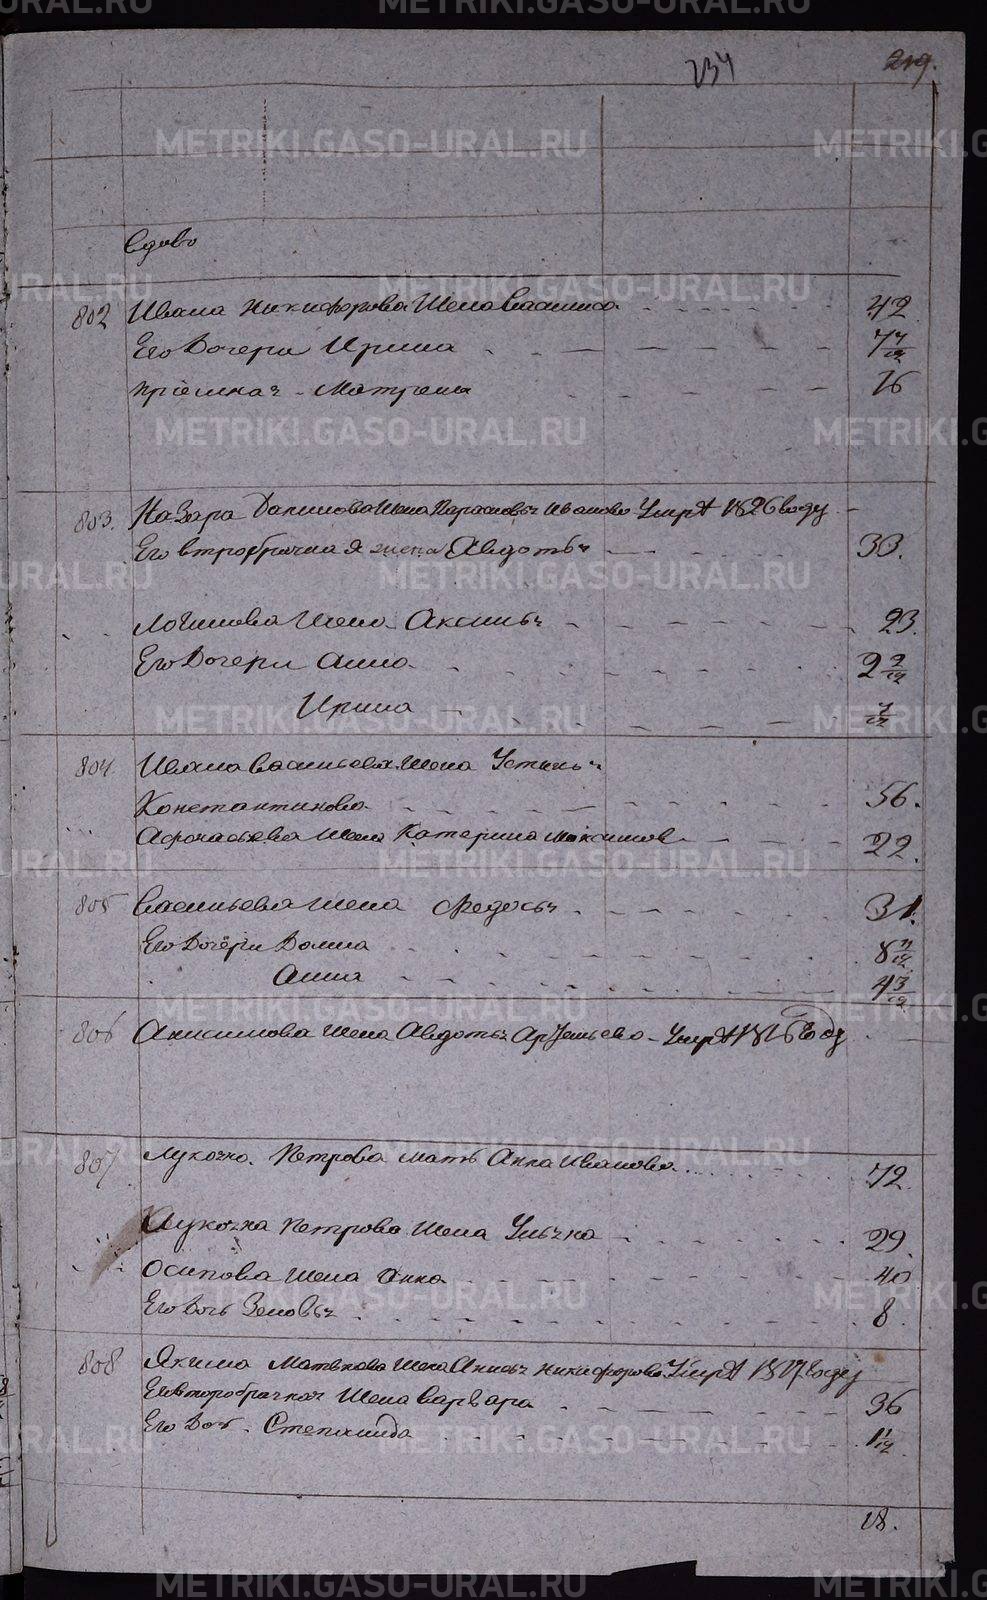 234
219.
вдово
802 Ивана Никифорова Жена Василиса 42
Его Дочери Ирина 7 7/12
приемная - Матрена 16
803. Назара Данилова Жена Парасковья Иванова Умре 1826 году
Его втробрачная жена Авдотья 33.
Логинова Жена Аксинья 23.
Его Дочери Анна 2 9/12
Ирина
804. Ивана Васильева Жена Устинья
Константинова 56.
Афонасьева Жена Катерина Максимов 22.
805 Васильева жена Федосья 31.
Его Дочери Домна 8 11/12
Анна 4 3/12
806 Анисимова Жена Авдотья Умре 1826 году
807 Лукояна Петрова мать Анна Иванова 72.
Лукояна Петрова Жена Ульяна 29.
Осипова жена Анна 40
Его Дочь Зеновья 8.
808 Якима Жена Никифорова Умре 1827 году
Его второбрачная Жена Варвара 36
Его Доч. Степанида 1 1/12
18.
METRIKI.GASO-URAL.RU